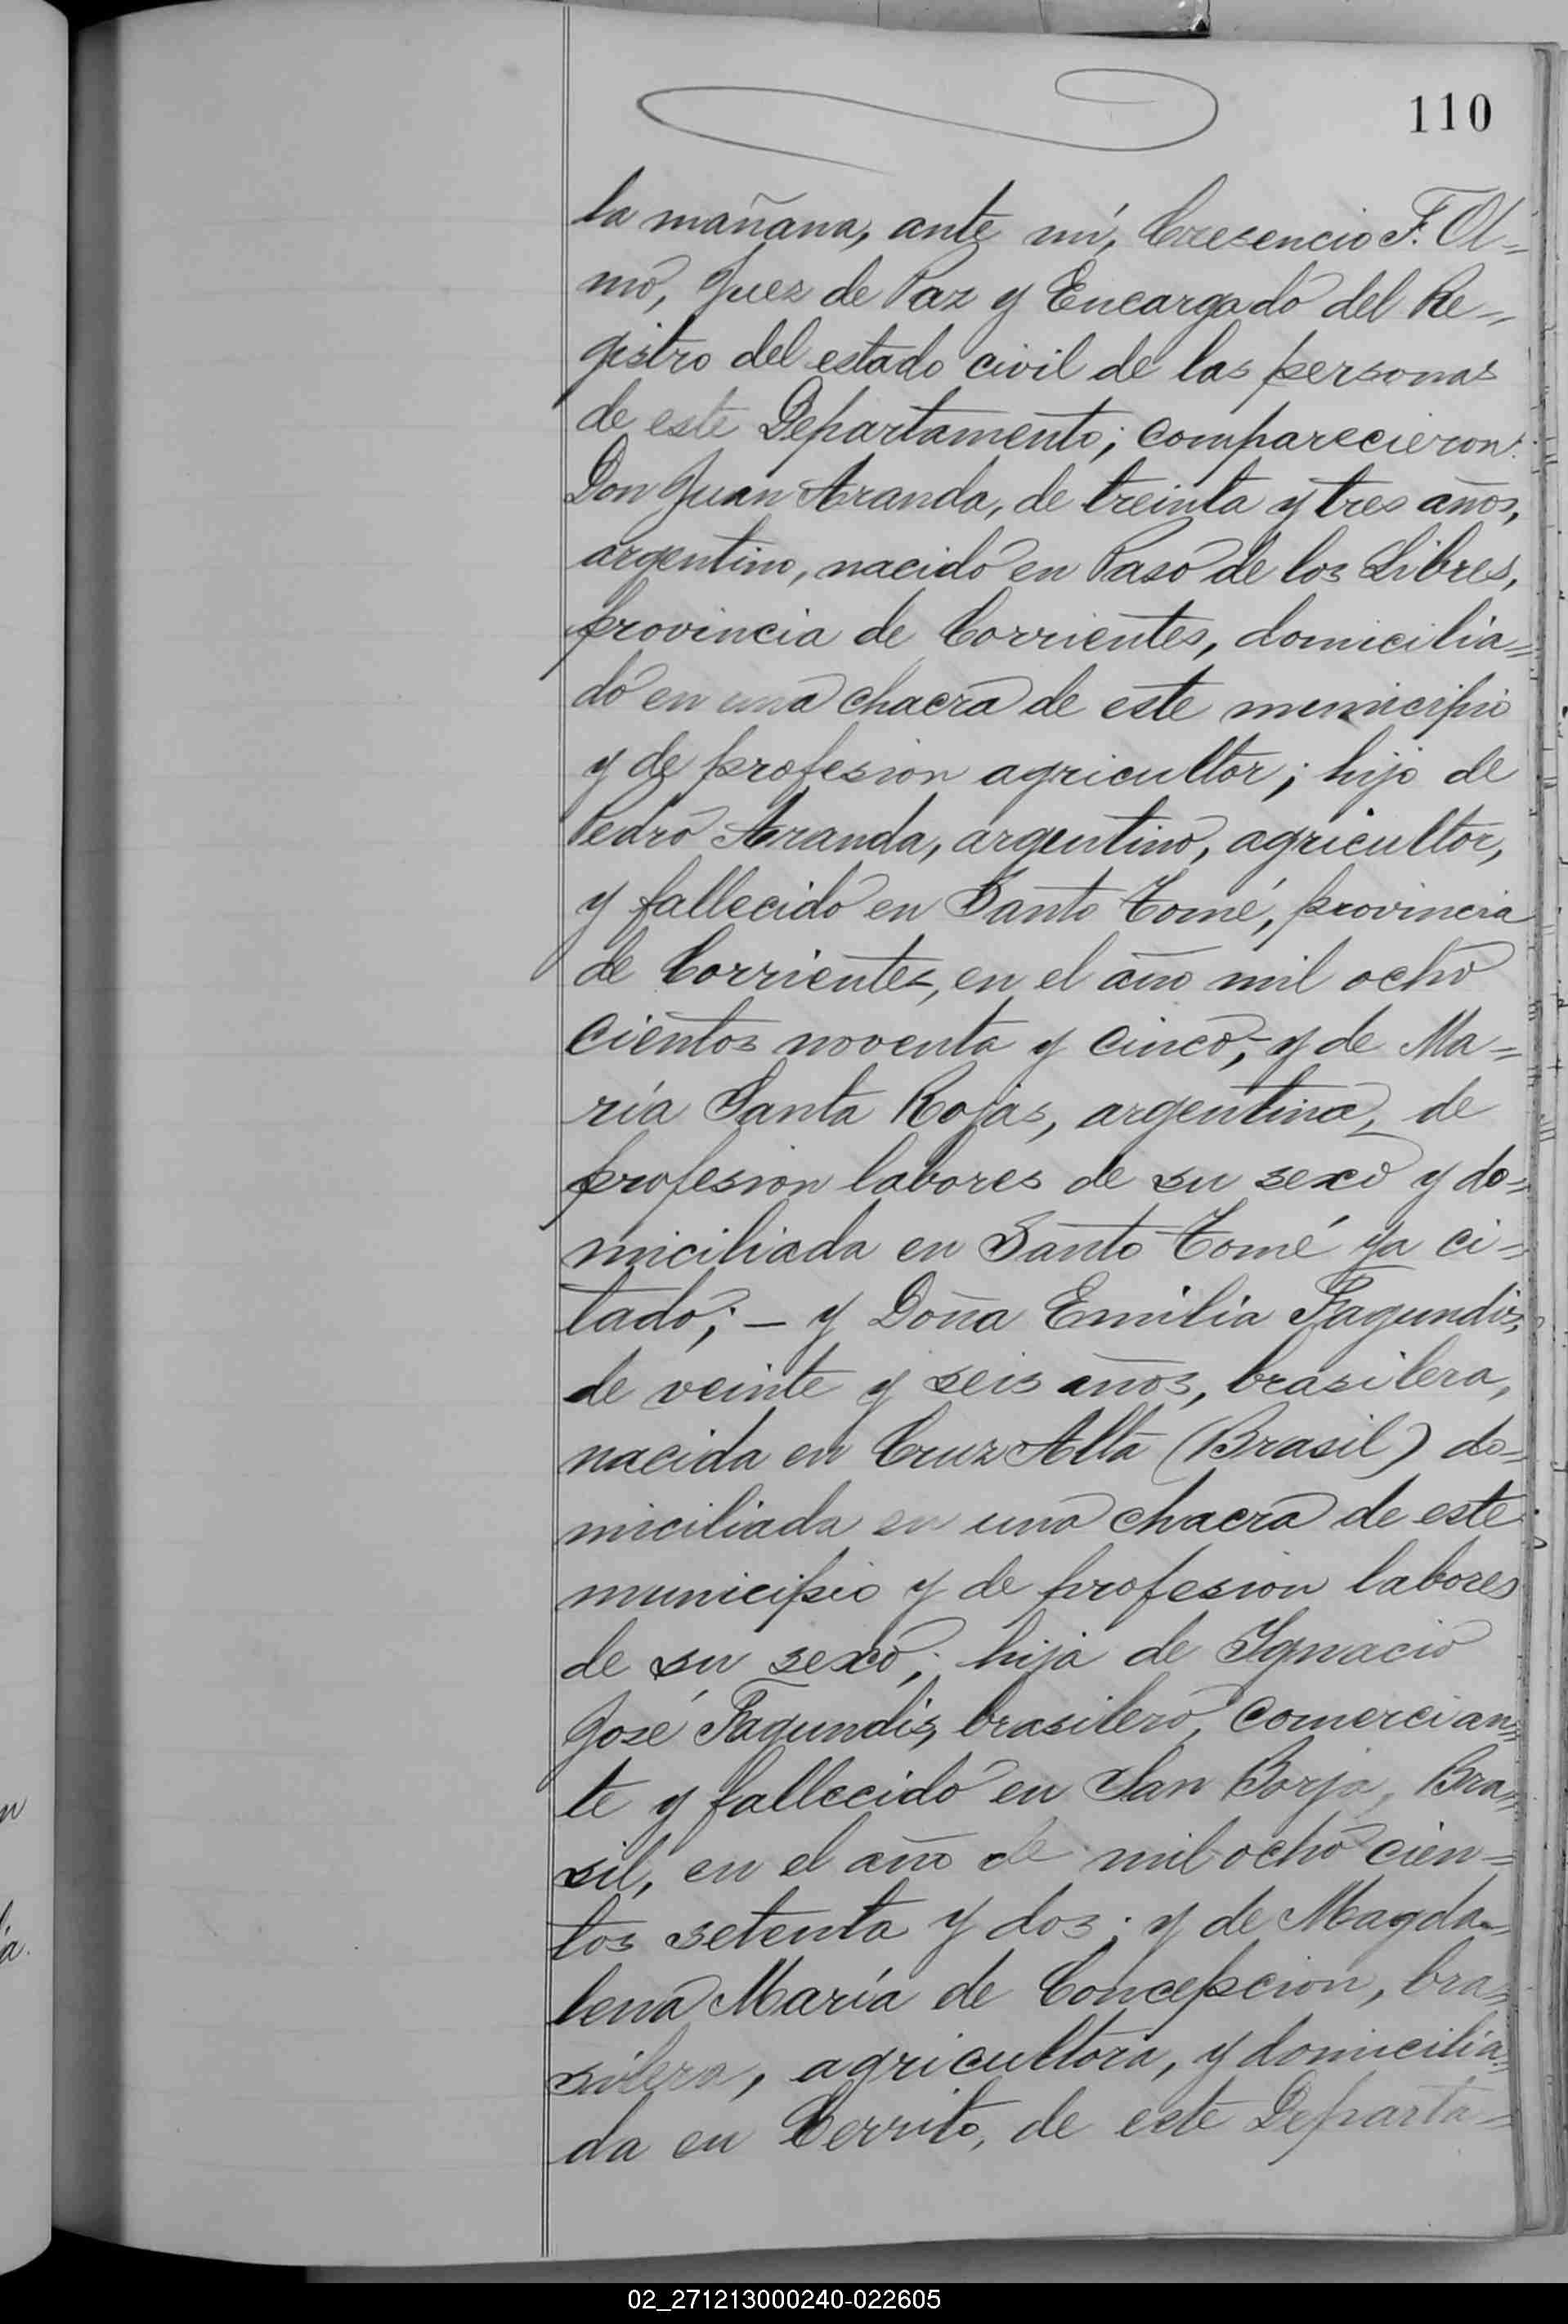 110
la mañana, ante mí, Cresencio F. Ol=
mo, Juez de Paz y Encargado del Re=
gistro del estado civil de las personas
de este Departamento; comparecieron:
Don Juan Aranda, de treinta y tres años,
argentino, nacido en Paso de los Libres,
provincia de Corrientes, domicilia=
do en una chacra de este municipio
y de profesion agricultor; hijo de
Pedro Aranda, argentino, agricultor,
y fallecido en Santo Tomé, provincia
de Corrientes, en el año mil ocho
cientos noventa y cinco; y de Ma=
ría Santa Rojas, argentina, de
profesion labores de su sexo y do=
miciliada en Santo Tomé ya ci=
tado; – y Doña Emilia Fagundis,
de veinte y seis años, brasilera,
nacida en Cruz Alta (Brasil) do=
miciliada en una chacra de este
municipio y de profesion labores
de su sexo; hija de Ignacio
José Fagundis, brasilero, comercian=
te y fallecido en San Borja, Bra=
sil, en el año de mil ocho cien=
tos setenta y dos; y de Magda=
lena María de Concepcion, bra=
silera, agricultora, y domicilia=
da en Cerrito, de este Departa=
02_271213000240-022605